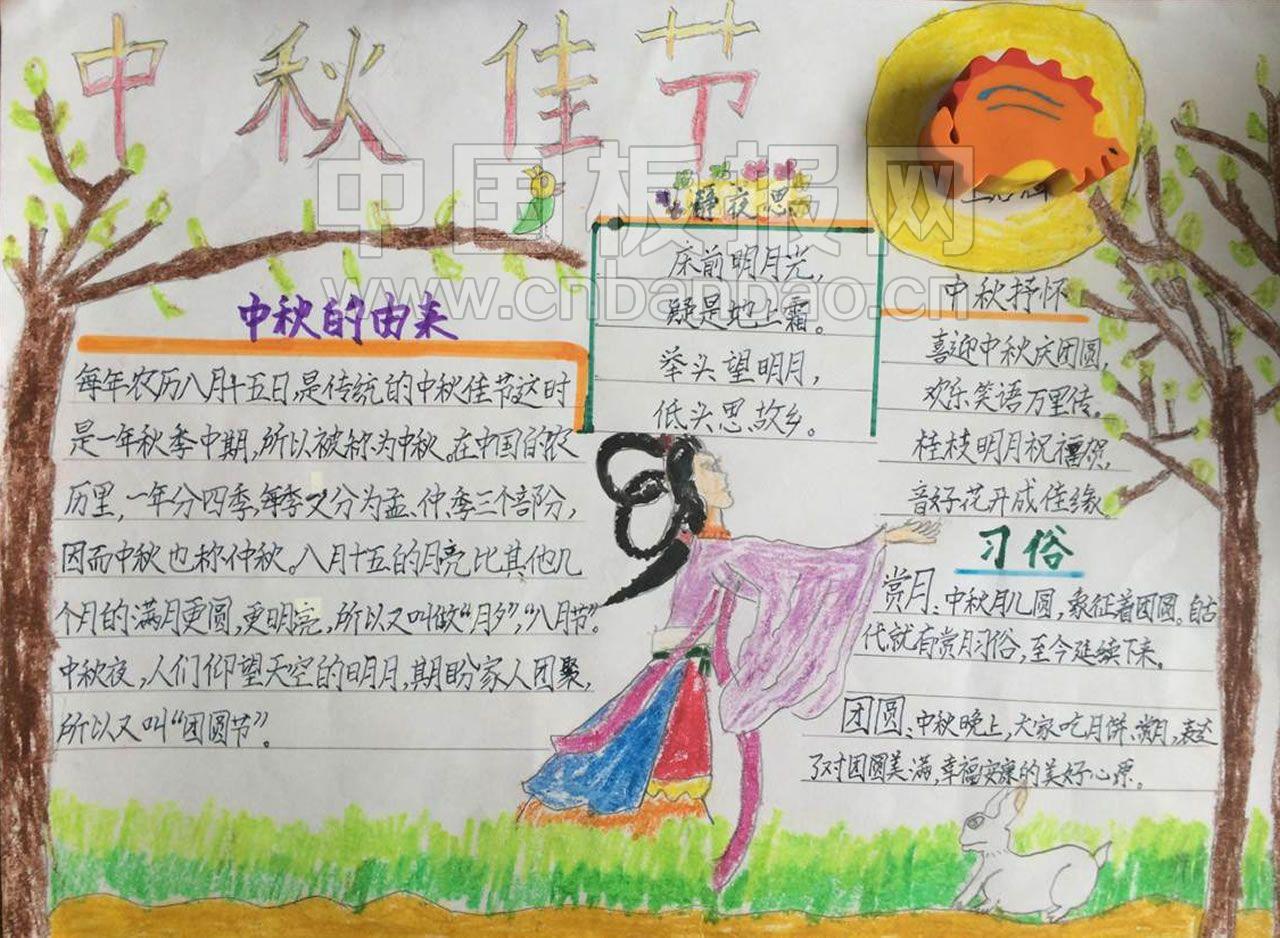 中秋佳节
中国板报网
www.cnbanbao.cn
中秋的由来
每年农历八月十五日,是传统的中秋佳节这时
是一年秋季中期,所以被称为中秋。在中国的农
历里,一年分四季,每季又分为孟、仲、季三个部分,
因而中秋也称仲秋。八月十五的月亮比其他几
个月的满月更圆,更明亮,所以又叫做“月夕”,“八月节”。
中秋夜,人们仰望天空的明月,期盼家人团聚,
所以又叫“团圆节”。
静夜思
床前明月光,
疑是地上霜。
举头望明月,
低头思故乡。
中秋抒怀
喜迎中秋庆团圆,
欢乐笑语万里传。
桂枝明月祝福贺,
音好花开成佳缘
习俗
赏月:中秋月儿圆,象征着团圆。自古
代就有赏月习俗,至今延续下来。
团圆:中秋晚上,大家吃月饼、赏月,表达
了对团圆美满,幸福安康的美好心愿。